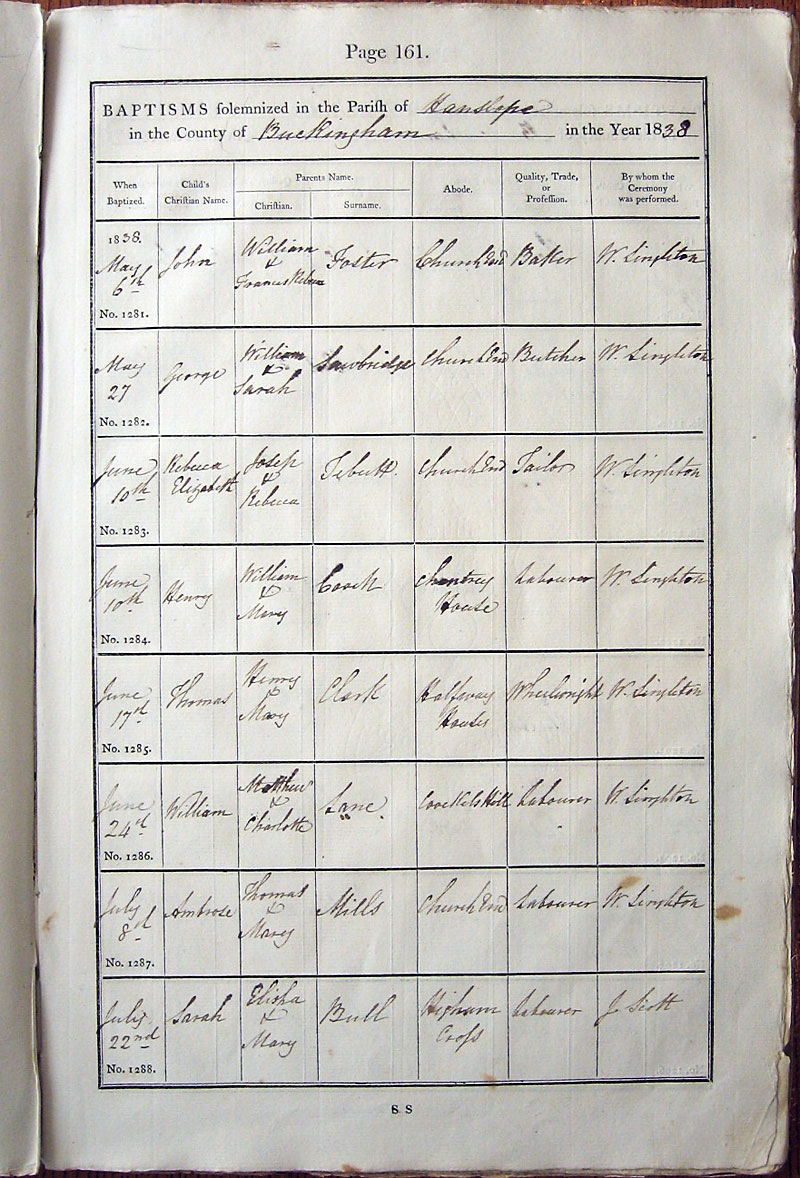 Page 161.
BAPTISMS solemnized in the Parish of Hanslope
in the County of Buckingham in the Year 1838
When Baptized. Child's Christian Name. Parents Name. Christian. Surname. Abode. Quality, Trade, or Profession. By whom the Ceremony was performed.
1838. May 6th No. 1281. John William & Frances Rebecca Foster Church End Baker W. Singleton
May 27 No. 1282. George William & Sarah Sawbridge Church End Butcher W. Singleton
June 10th No. 1283. Rebecca Elizabeth Joseph & Rebecca Tebutt. Church End Tailor W. Singleton
June 10th No. 1284. Henry William & Mary Cooch Chantrey House Labourer W. Singleton
June 17th No. 1285. Thomas Henry & Mary Clark Halfway Houses Wheelwright W. Singleton
June 24th No. 1286. William Matthew & Charlotte Lane Hill Labourer W. Singleton
July 8th No. 1287. Ambrose Thomas & Mary Mills Church End Labourer W. Singleton
July 22nd No. 1288. Sarah Elisha & Mary Bull Higham Cross Labourer J. Scott
S S